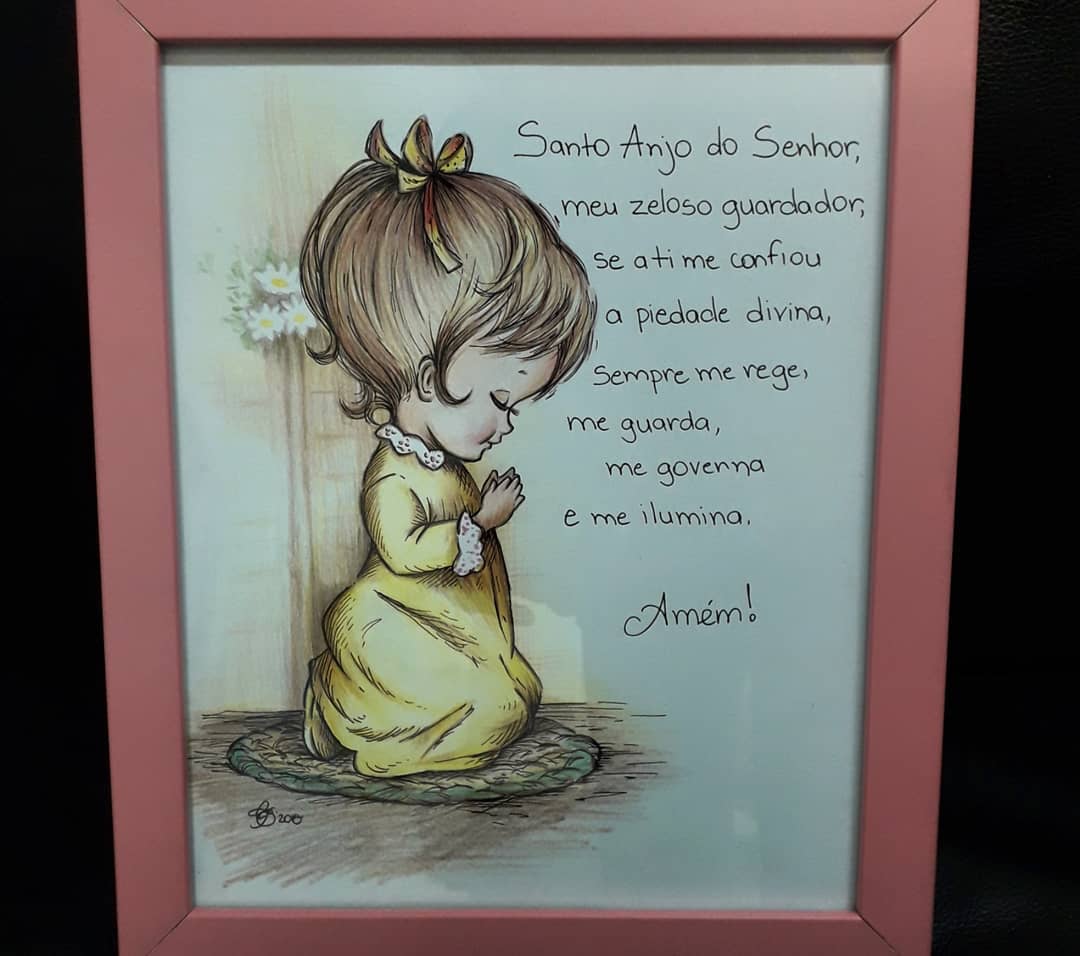 Santo Anjo do Senhor,
meu zeloso guardador,
se a ti me confiou
a piedade divina,
Sempre me rege,
me guarda,
me governa
e me ilumina.
Amém!